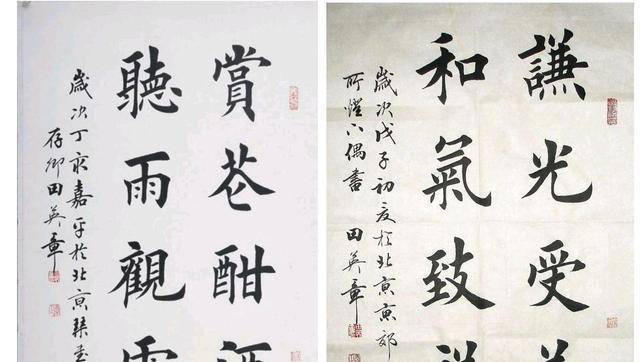 賞花酣酒
聽雨觀
歲次丁亥嘉平於北京
存卿田英章
謙光受
和氣致
歲次戊子初夏於北京京郊
偶書 田英章